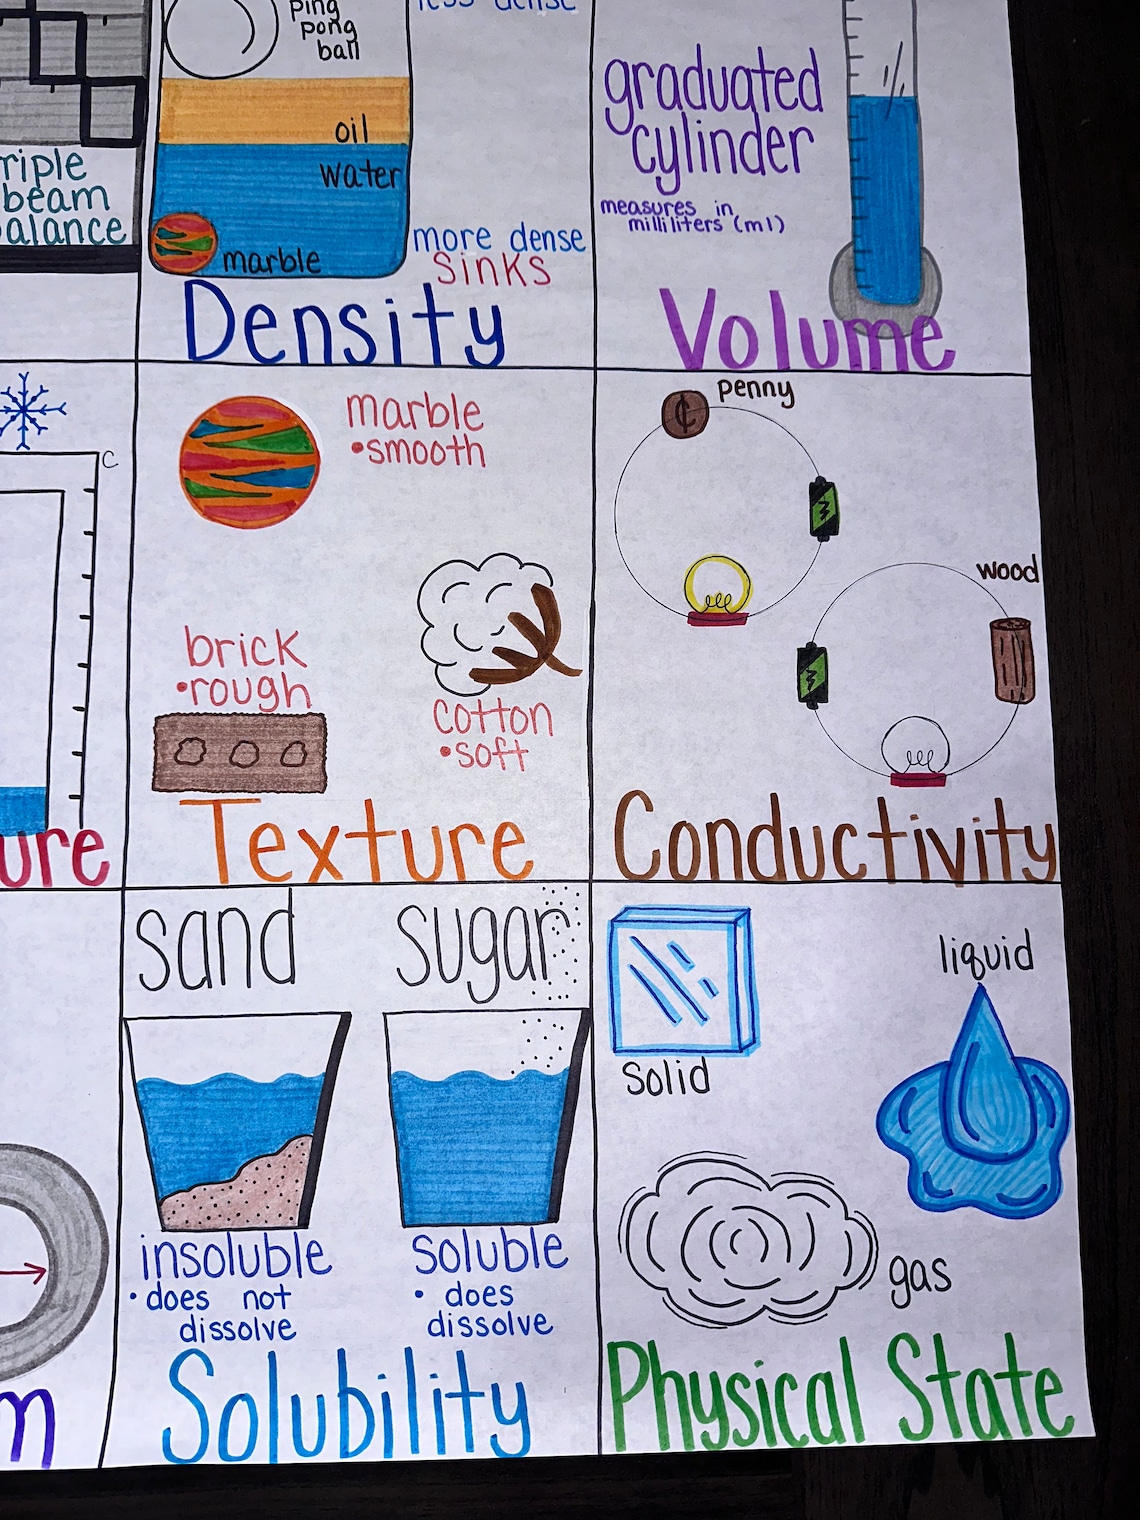 ping
pong
ball
less dense
oil
water
marble
more dense
sinks
Density
beam
graduated
cylinder
measures in
milliliters (ml)
Volume
C
marble
• smooth
brick
• rough
cotton
• soft
Texture
penny
¢
wood
Conductivity
sand
sugar
insoluble
• does not
dissolve
soluble
• does
dissolve
Solubility
solid
liquid
gas
Physical State